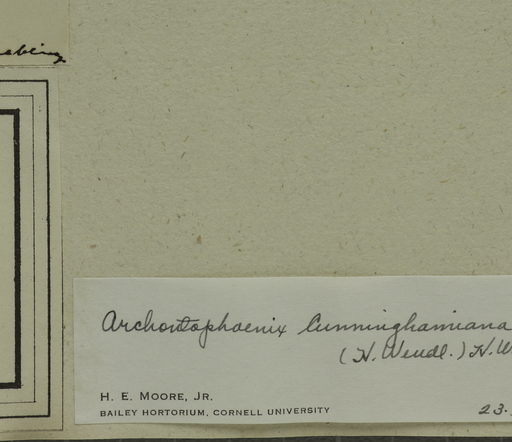 Archontophoenix Cunninghamiana
(H. Wendl.) H. W
H. E. MOORE, JR.
BAILEY HORTORIUM, CORNELL UNIVERSITY
23.